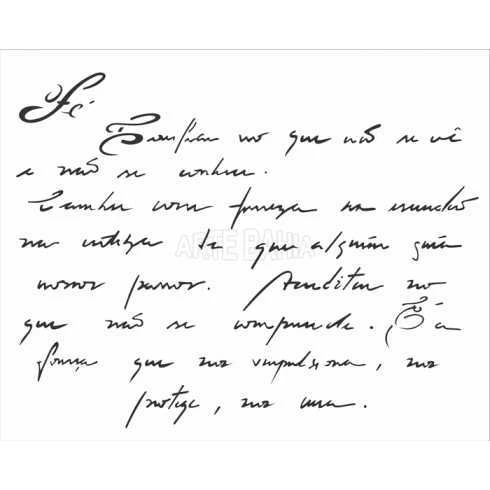 Fé
Confiar no que não se vê
e não se conhece.
Caminhar com firmeza na escuridão
na certeza de que alguém guia
nossos passos. Acreditar no
que não se compreende. É a
força que nos impulsiona, nos
protege, nos cura.
ARTE BAHIA